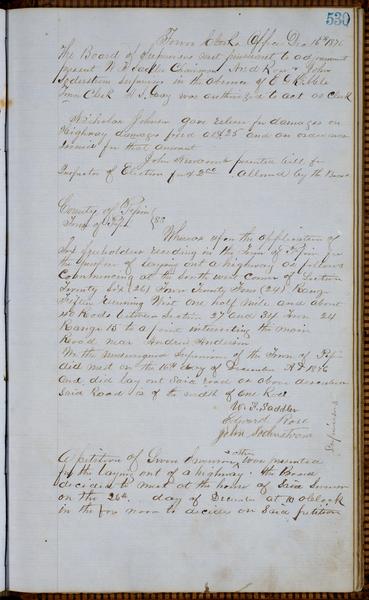 530
Town Clerks Office Dec 16th 1876
The Board of Supervisors met pursuant to adjournment
present W. F. Sadler Chairman John
Soderstrom Supervisors in the absence of
Town Clerk Gray was authorized to act as Clerk
Nicholas Johnson gave release for damages on
Highway damages fixed at $25 and an order was
issued for that amount
John Newcomb presented bill for
Inspector of Election allowed by the Board
County of Pepin
Town of Pepin
Whereas upon the application of
Six freeholders residing in the Town of Pepin for
the purpose of laying out a highway as follows
Commencing at the south west corner of Section
Twenty Six (26) Town Twenty Four (24) Range
Fifteen running West one half mile and about
Rods between Section 27 and 34 Town 24
Range 15 to a point intersecting the main
Road near Andrew Anderson
We the undersigned Supervisors of the Town of Pepin
did meet on the 16th day of December A.D. 1876
and did lay out said road as above described
said Road to be of the width of one Rod
W. F. Saddler
Edward Rose
John Soderstrom
Supervisors
A petition of Swon Swenson & others was presented
for the laying out of a highway. The Board
decided to meet at the house of said Swenson
on the 26th day of December at 10 o'clock
in the fore noon to decide on said petition